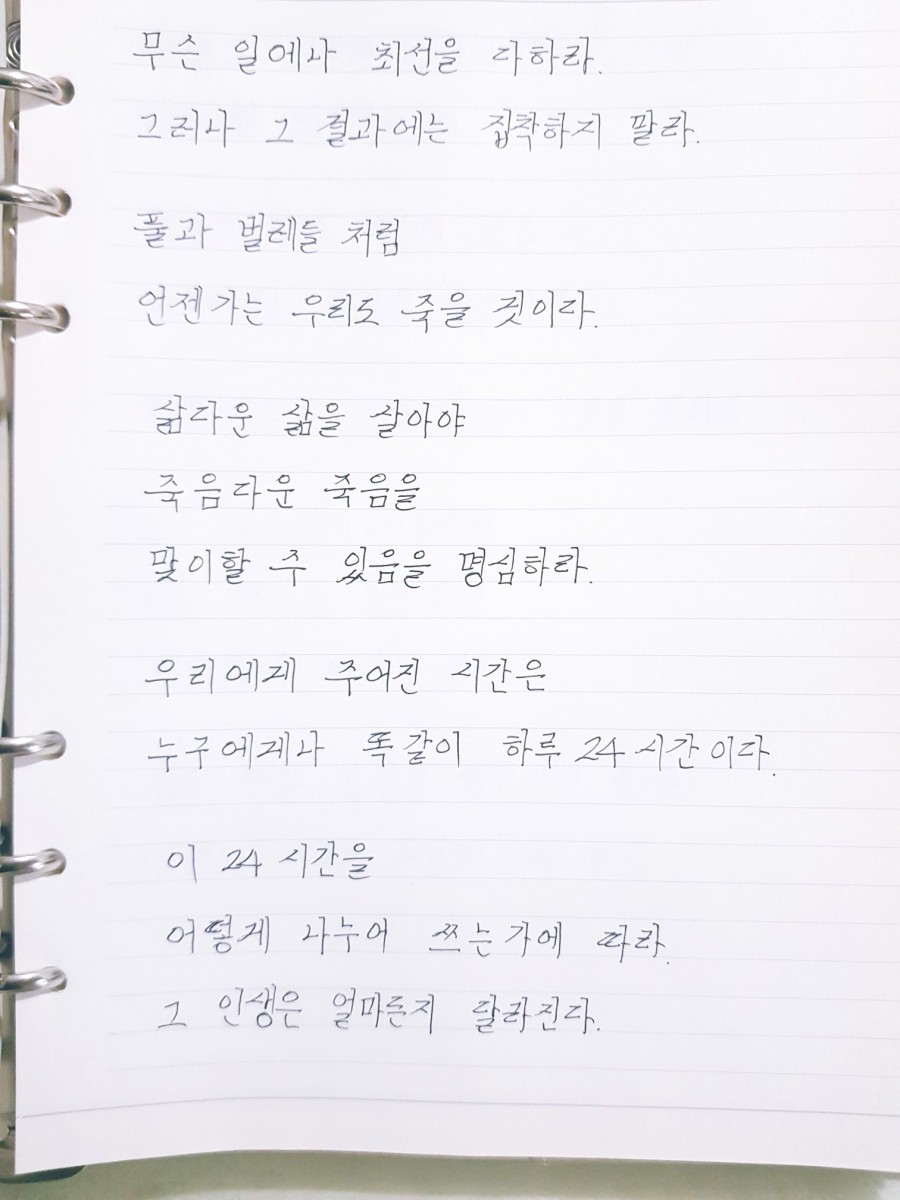 무슨 일에나 최선을 다하라.
그러나 그 결과에는 집착하지 말라.
풀과 벌레들 처럼
언젠가는 우리도 죽을 것이다.
삶다운 삶을 살아야
죽음다운 죽음을
맞이할 수 있음을 명심하라.
우리에게 주어진 시간은
누구에게나 똑같이 하루 24시간이다.
이 24시간을
어떻게 나누어 쓰는가에 따라.
그 인생은 얼마든지 달라진다.